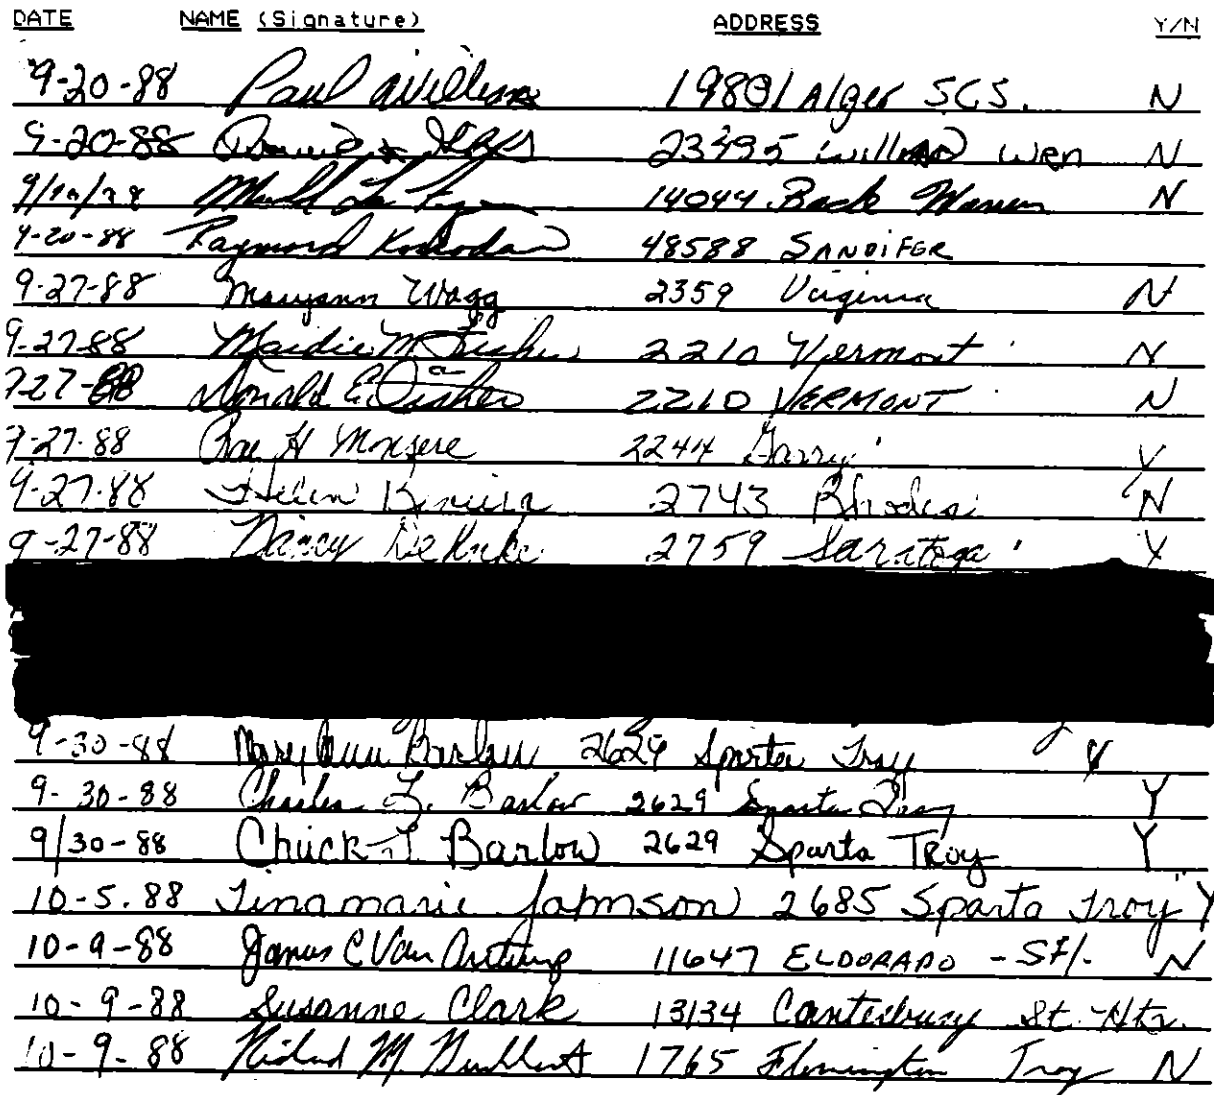 DATE NAME (Signature) ADDRESS Y/N
9-20-88 Paul 19801 Alger SCS. N
9-20-88 23495 N
14044 N
9-20-88 Raymond 48588 SANDIFER
9-27-88 Maryann Wagg 2359 Virginia N
9-27-88 Maidie M. Fisher 2210 Vermont N
9-27-88 Donald E. Fisher 2210 VERMONT N
9-27-88 Rae H 2244 Y
9-27-88 Helen 2743 Rhodes N
9-27-88 Nancy 2759 Saratoga Y
9-30-88 Mary Ann Barlow 2629 Sparta Troy Y
9-30-88 Charles L. Barlow 2629 Sparta Troy Y
9/30-88 Chuck L Barlow 2629 Sparta Troy Y
10-5-88 Tinamarie Johnson 2685 Sparta Troy Y
10-9-88 James C Van 11647 ELDORADO - St/- N
10-9-88 Susanne Clark 13134 Canterbury St. Hts.
10-9-88 Richard M. 1765 Flemington Troy N